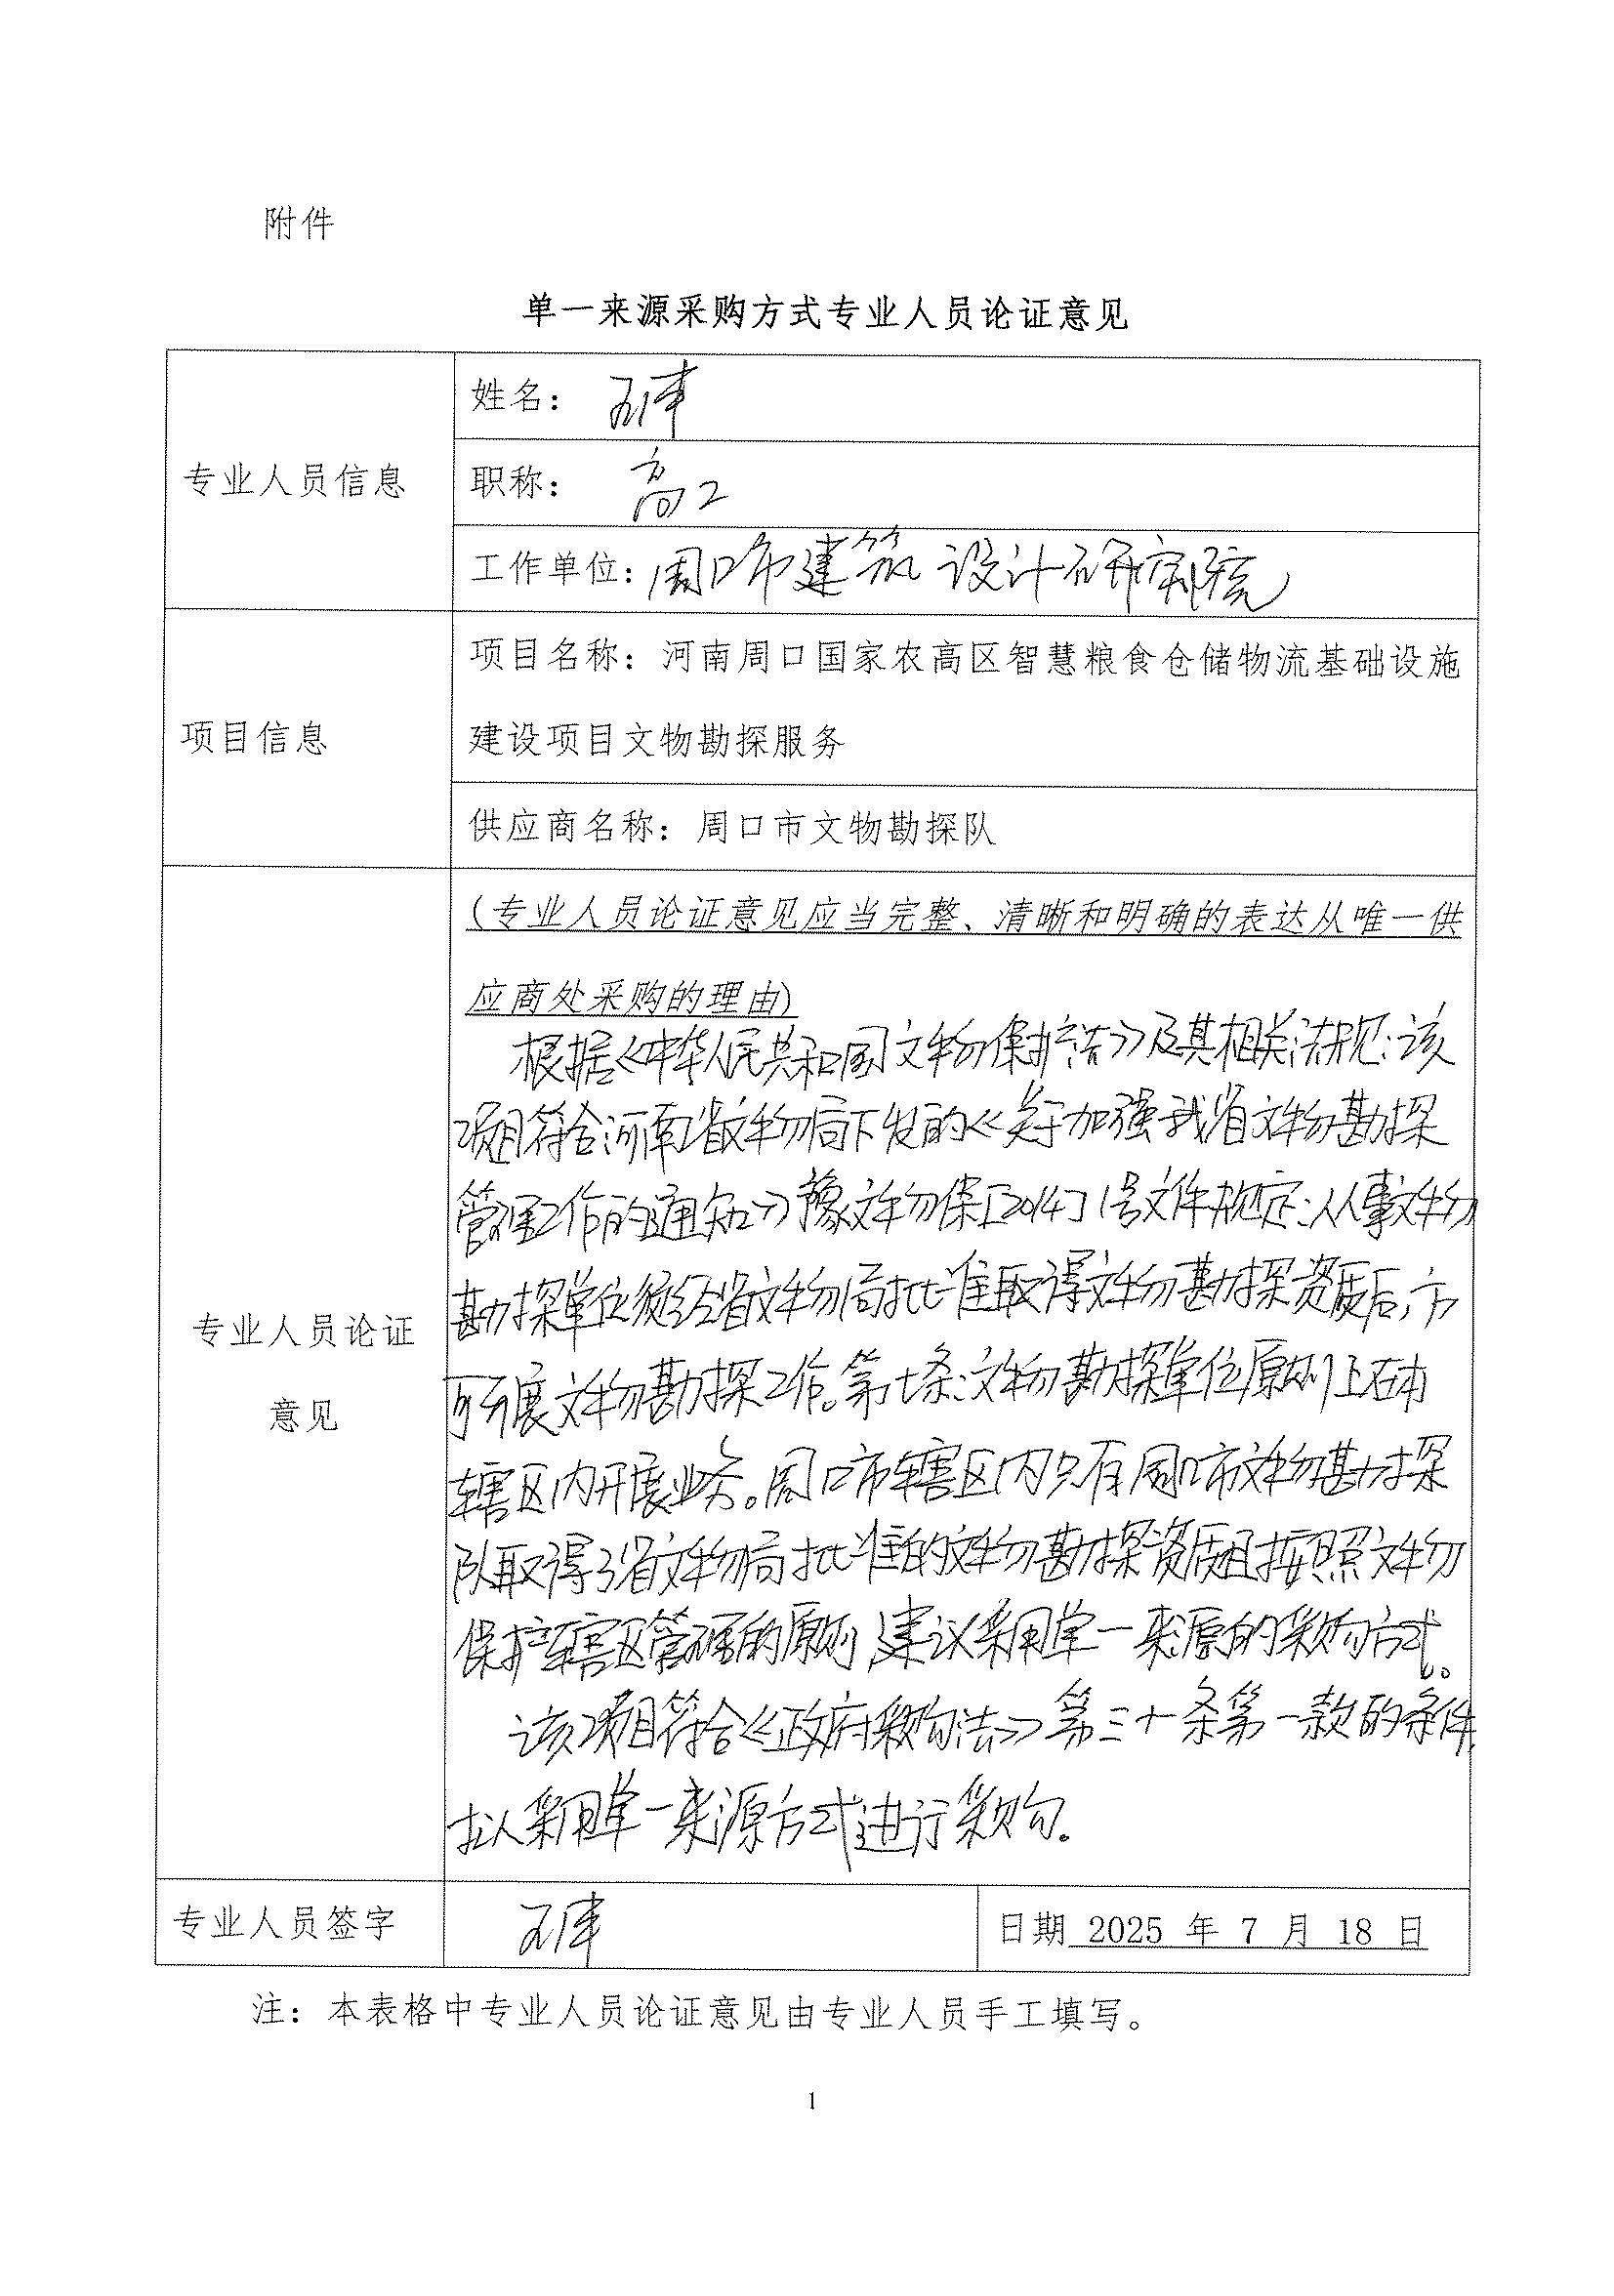 附件
单一来源采购方式专业人员论证意见
专业人员信息
姓名：
职称： 高工
工作单位：周口市建筑设计研究院
项目信息
项目名称：河南周口国家农高区智慧粮食仓储物流基础设施
建设项目文物勘探服务
供应商名称：周口市文物勘探队
专业人员论证
意见
(专业人员论证意见应当完整、清晰和明确的表达从唯一供
应商处采购的理由)
根据《中华人民共和国文物保护法》及其相关法规：该
项目符合河南省文物局下发的《关于加强我省文物勘探
管理工作的通知》豫文物保[2014]1号文件规定：从事文物
勘探单位须经省文物局批准取得文物勘探资质后，方
可开展文物勘探工作。第七条：文物勘探单位原则上在本
辖区内开展业务。周口市辖区内只有周口市文物勘探
队取得了省文物局批准的文物勘探资质且按照文物
保护辖区管理的原则，建议采用单一来源的采购方式。
该项目符合《政府采购法》第三十条第一款的条件，
拟采用单一来源方式进行采购.
专业人员签字
日期 2025 年 7 月 18 日
注：本表格中专业人员论证意见由专业人员手工填写。
1